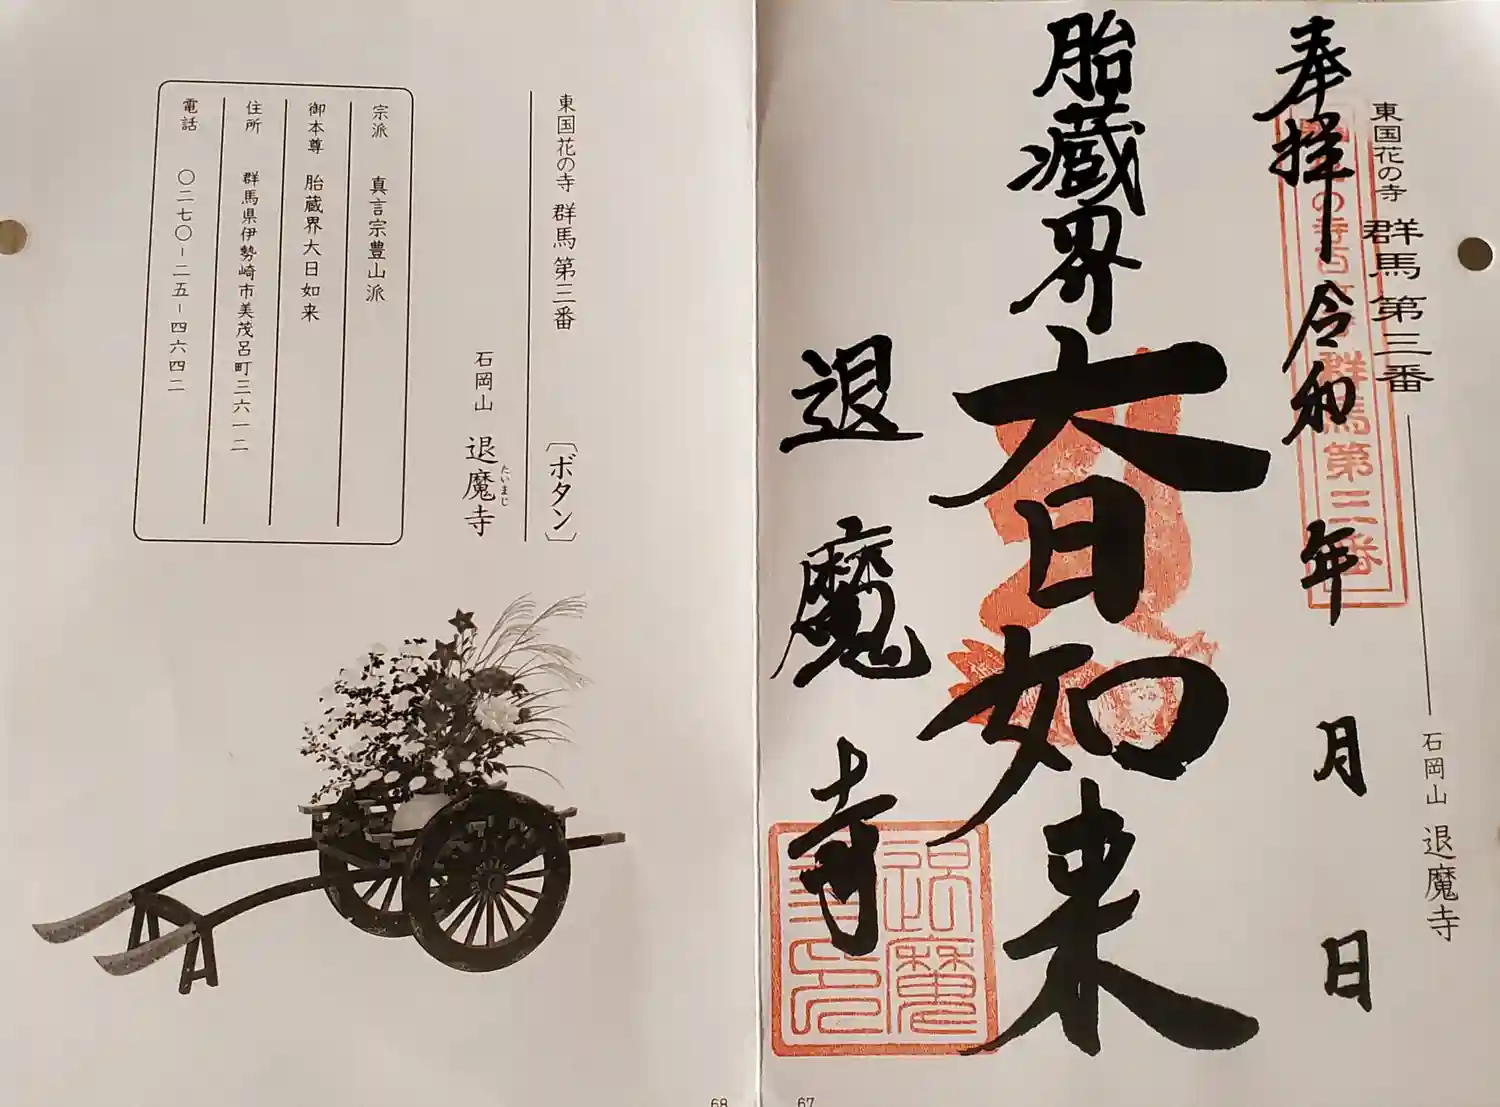 東国花の寺 群馬 第三番
石岡山 退魔寺
奉拝 令和 年 月 日
の寺百ヶ寺 群馬第三番
胎蔵界
大日如来
退魔寺
退魔寺印
67
東国花の寺 群馬 第三番 〔ボタン〕
石岡山 退魔寺
たいまじ
宗派 真言宗豊山派
御本尊 胎蔵界大日如来
住所 群馬県伊勢崎市美茂呂町三六一二
電話 〇二七〇-二五-四六四二
68